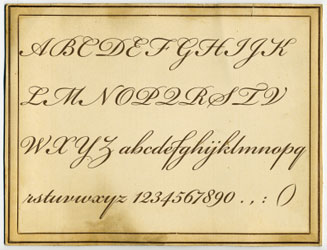 ABCDEFGHIJK
LMNOPQRSTV
WXYZ abcdefghijklmnopq
rsturwxyz 1234567890 . , : ()